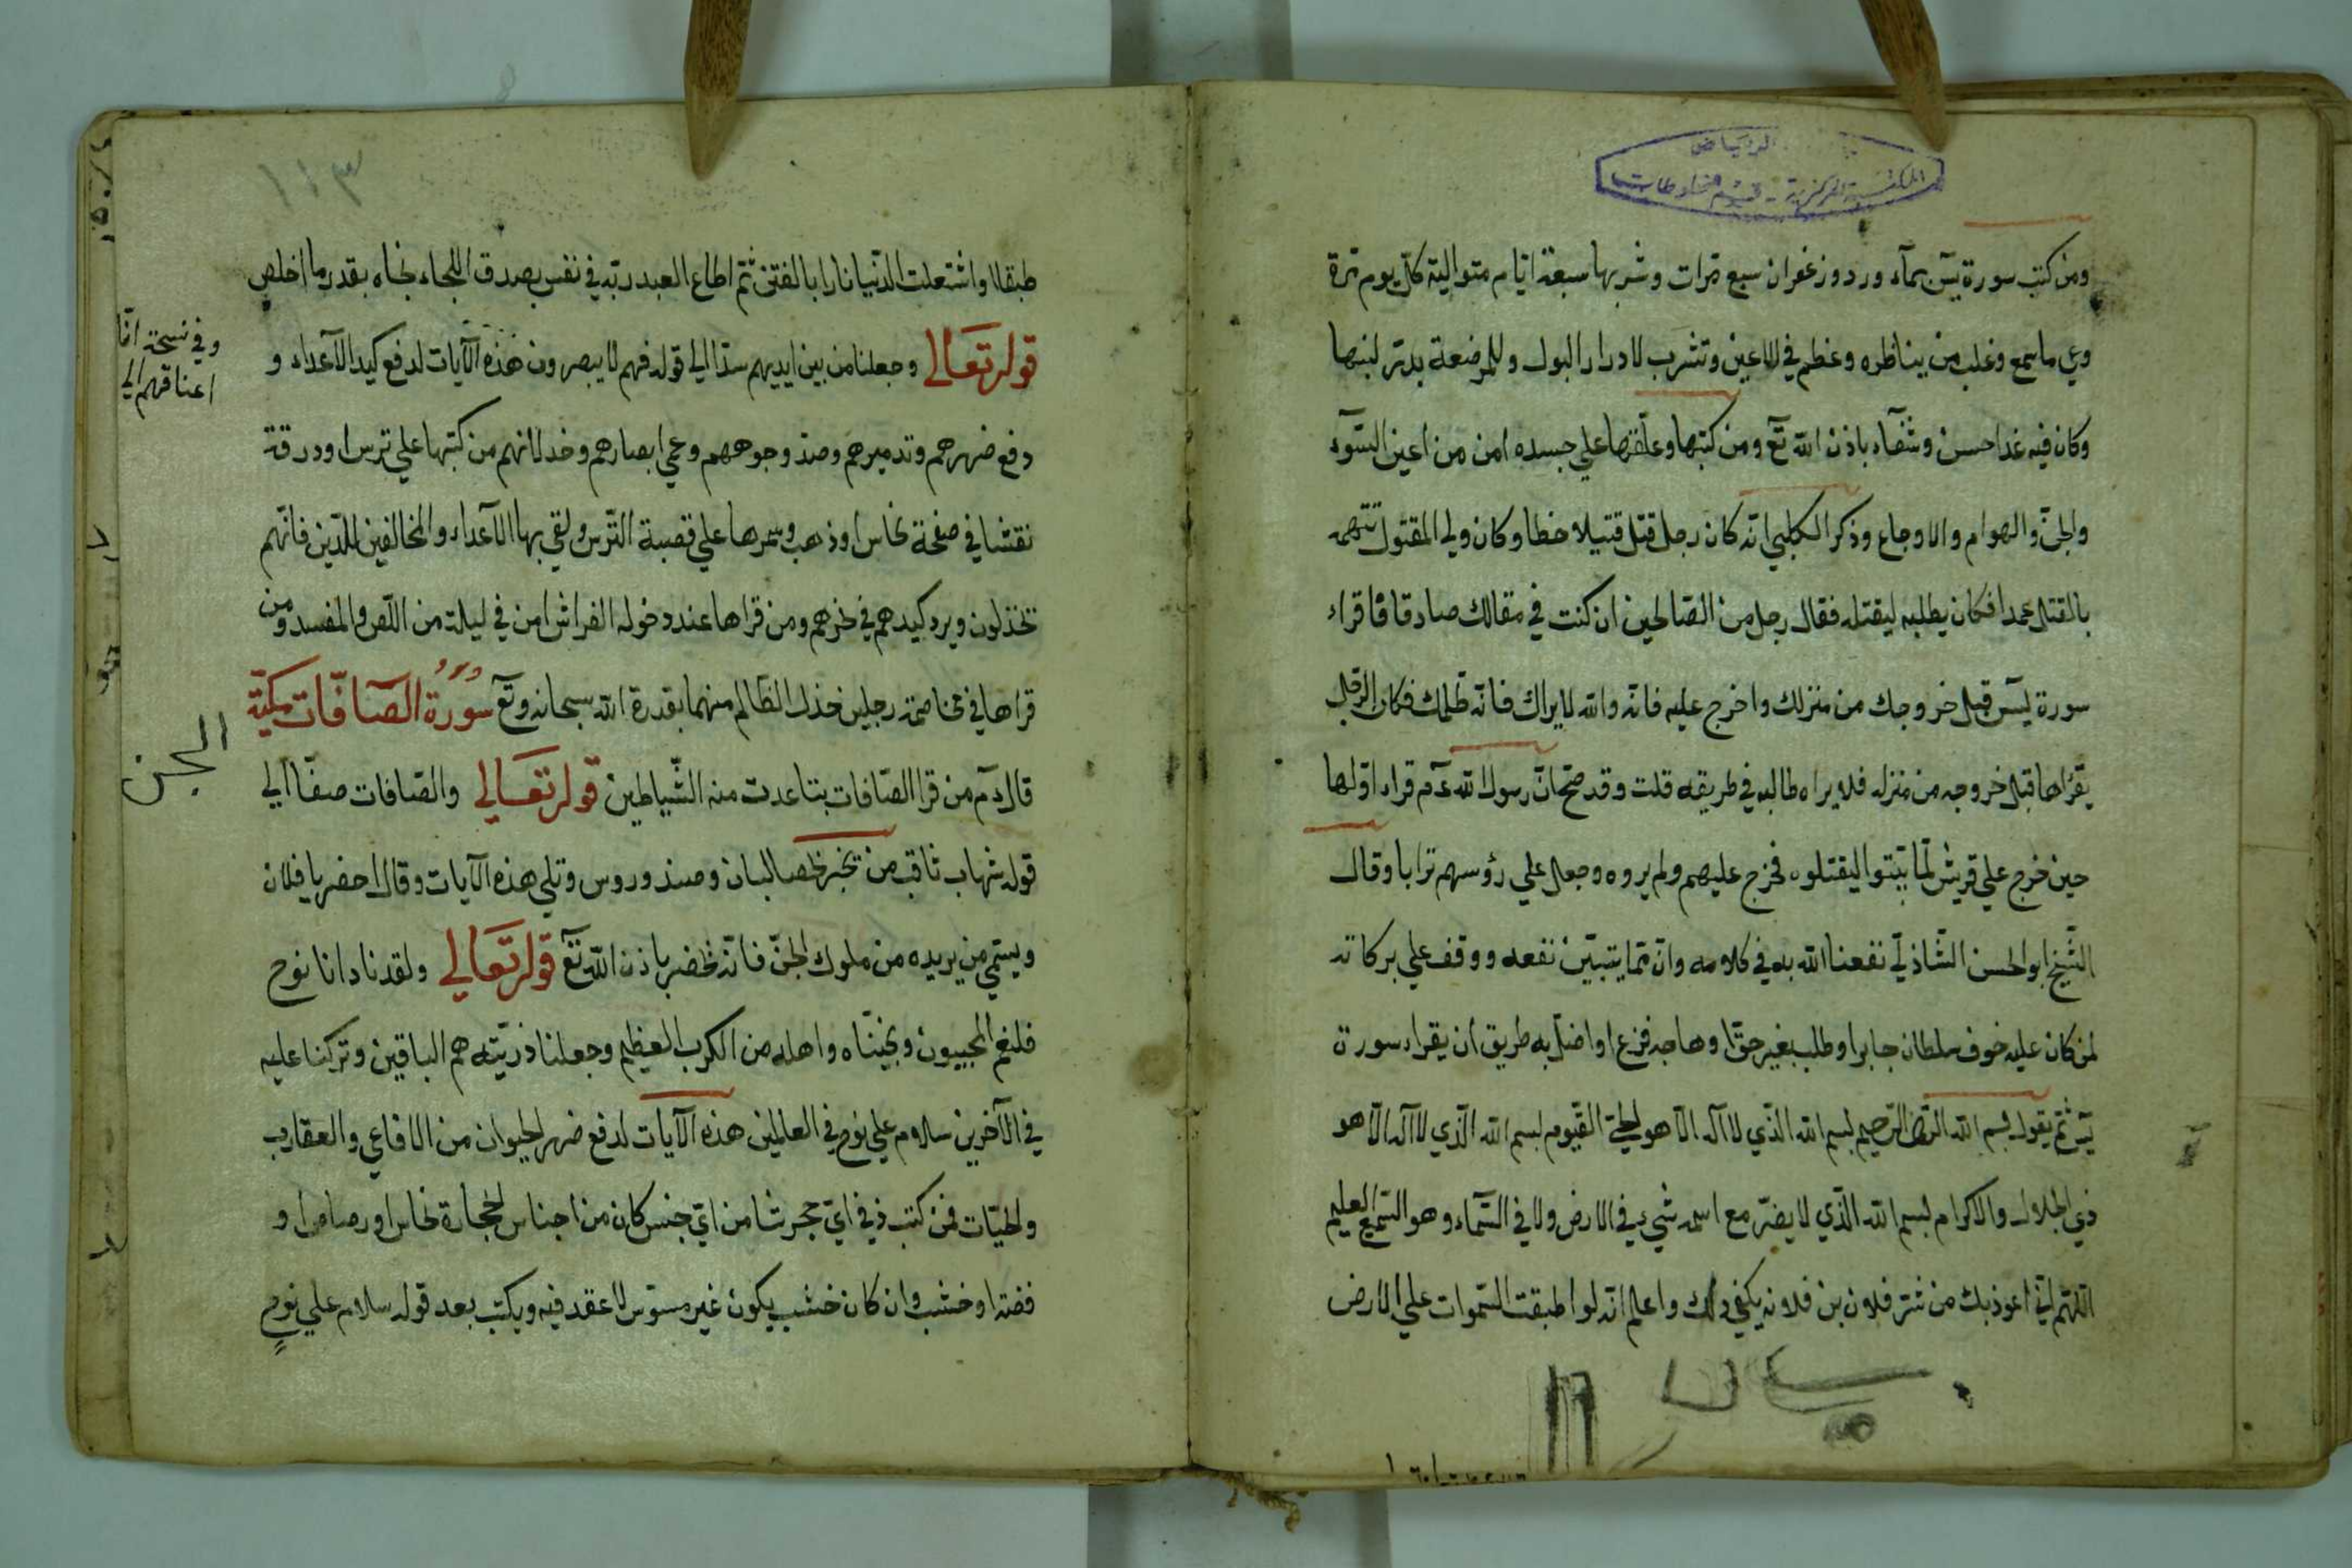 الرياض
المكتبة المركزية - قسم المخطوطات
ومن كتب سورة يس بمآء ورد وزعفران سبع مرات وشربها سبعة ايّام متوالية كلّ يوم مرة
وعي ما سمع وغلب من يناظره وعظم في الاعين وتشرب لادرار البول وللمرضعة يدرّ لبنها
وكان فيه غذا حسن وشفآء باذن الله تع ومن كتبها وعلّقها علي جسده امن من اعين السّوء
والجنّ والهوام والاوجاع وذكر الكلبي انّه كان رجل قتل قتيلا خطا وكان ولي المقتول تتهمه
بالقتل عمدا فكان يطلبه ليقتله فقال رجل من الصّالحين ان كنت في مقالك صادقا فاقراء
سورة يس قبل خروجك من منزلك واخرج عليه فانّه والله لا يراك فانّه ظلمك فكان الرّجل
يقرٔاها قبل خروجه من منزله فلا يراه طالبه في طريقه قلت وقد صحّ انّ رسول الله عم قراء اوّلها
حين خرج علي قريش لمّا بيّتوا ليقتلوه فخرج عليهم ولم يروه وجعل علي رؤسهم ترابا وقال
الشّيخ ابو الحسن الشّاذلي نفعنا الله به في كلامه وانّ ممّا يتبيّن نفعه ووقف علي بركاته
لمن كان عليه خوف سلطان جابر او طلب بغير حقّ او هاجه فزع او اضلّ به طريق ان يقراء سورة
يس ثمّ يقول بسم الله الرّحمن الرّحيم بسم الله الّذي لا اله الّا هو الحيّ القيّوم بسم الله الّذي لا اله الّا هو
ذي الجلال والاكرام بسم الله الّذي لا يضرّ مع اسمه شيء في الارض ولا في السّماء وهو السّميع العليم
اللهمّ انّي اعوذ بك من شرّ فلان بن فلانه يكفي ذلك واعلم انّه لو اطبقت السّموات علي الارض
١١٣
طبقا لا واشتعلت الدّنيا نارا بالفتن ثمّ اطاع العبد ربّه في نفس بصدق اللجاء نجاه بقدر ما اخلص
قوله تعالي وجعلنا من بين ايديهم سدّا الي قوله فهم لا يبصرون هذه الآيات لدفع كيد الاعداء و
دفع ضررهم وتدميرهم وصدّ وجوههم وعمي ابصارهم وخذلانهم من كتبها علي ترس او درقة
نقشا في صفحة نحاس او ذهب وسمرها علي قصبة التّرس ولقي بها الاعداء والمخالفين للدّين فانّهم
تخذلون ويرد كيدهم في نحرهم ومن قراها عند دخوله الفراش امن في ليلته من اللّص والمفسد ومن
قراها في مخاصمة رجلين خذل الظّالم منهما بقدرة الله سبحانه وتع سورة الصّافّات مكيّة
قال عم من قرا الصّافات تباعدت منه الشّياطين قوله تعالي والصّافات صفّا الي
قوله شهاب ثاقب من تبخر بحصالبان وصندوروس وتلي هذه الآيات وقال احضر يا فلان
ويسمّي من يريده من ملوك الجنّ فانّه يحضر باذن الله تع قوله تعالي ولقد نادانا نوح
فلنعم المجيبون ونجيّناه واهله من الكرب العظيم وجعلنا ذريّته هم الباقين وتركنا عليه
في الآخرين سلام علي نوح في العالمين هذه الآيات لدفع ضرر الحيوان من الافاعي والعقارب
والحيّات فمن كتب ذ في ايّ حجر شا من ايّ جنس كان من اجناس الحجارة نحاس او رصاص او
فضة او خشب وان كان خشب يكون غير مسوّس لا عقد فيه ويكتب بعد قوله سلام علي نوح
وفي نسخة انّا
اعناقهم الي
الجن